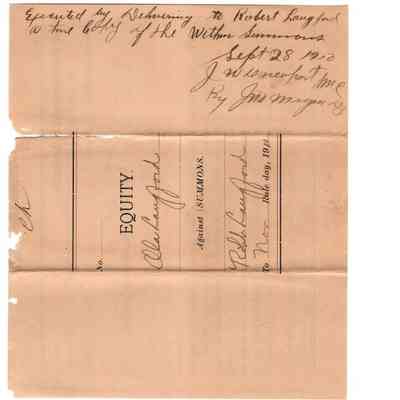 Executed by Delivering to Robert Langford
a true Copy of the Within Summons
Sept 28 1910
By Jno
No.
EQUITY.
Ola Langford
Against SUMMONS.
Robt Langford
To Nov Rule day, 191